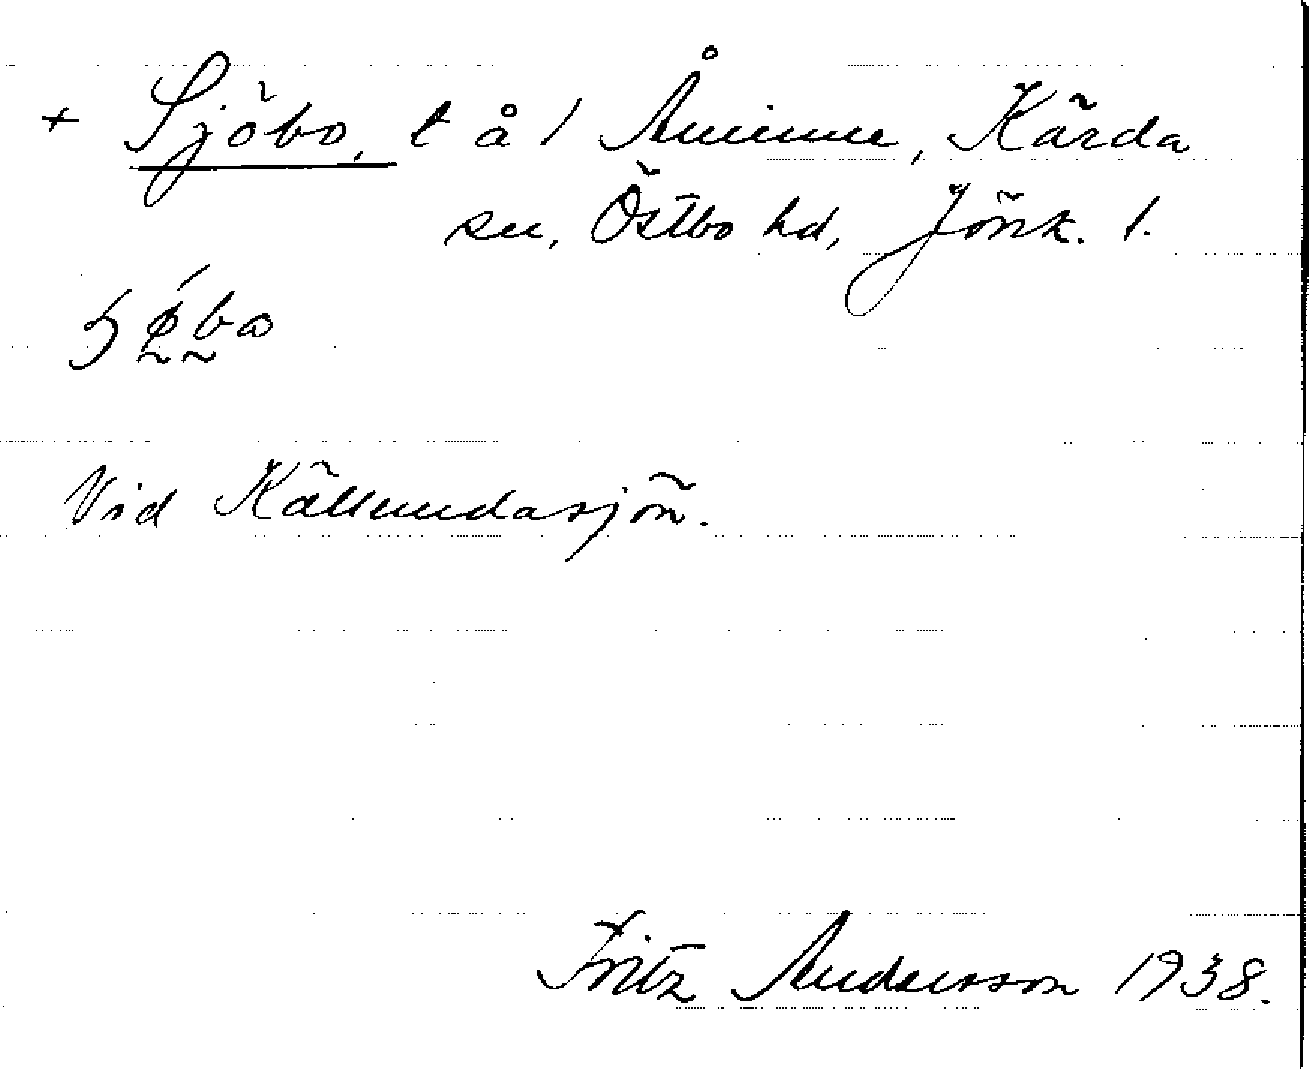 + Sjöbo, t å 1 Åminne, Kärda
sn, Östbo hd, Jönk. l.
Vid Källundasjön.
Fritz Andersson 1938.